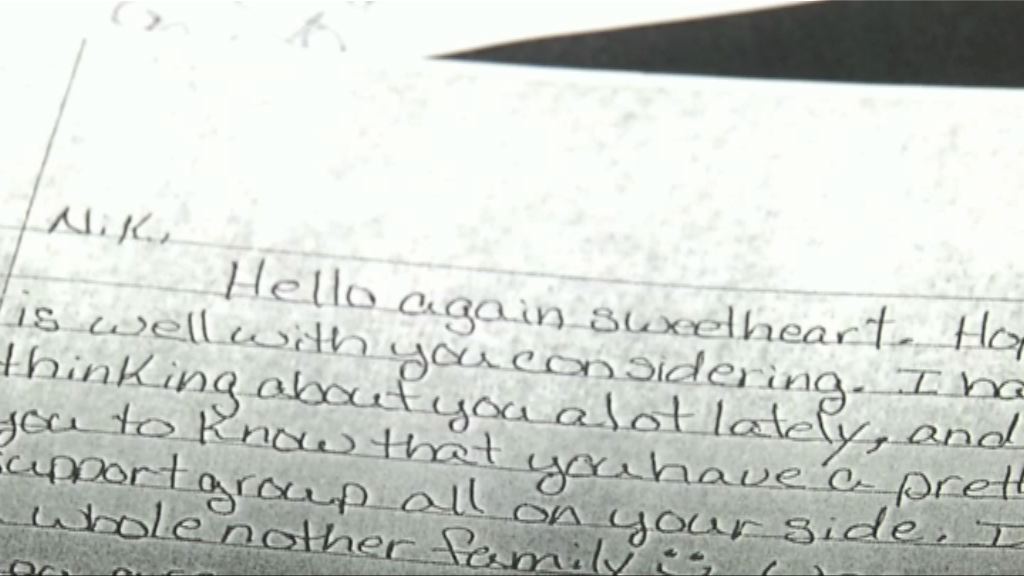 Nik,
Hello again sweetheart. Hop
is well with you considering. I ha
thinking about you a lot lately, and
you to know that you have a prett
support group all on your side. I
whole nother family